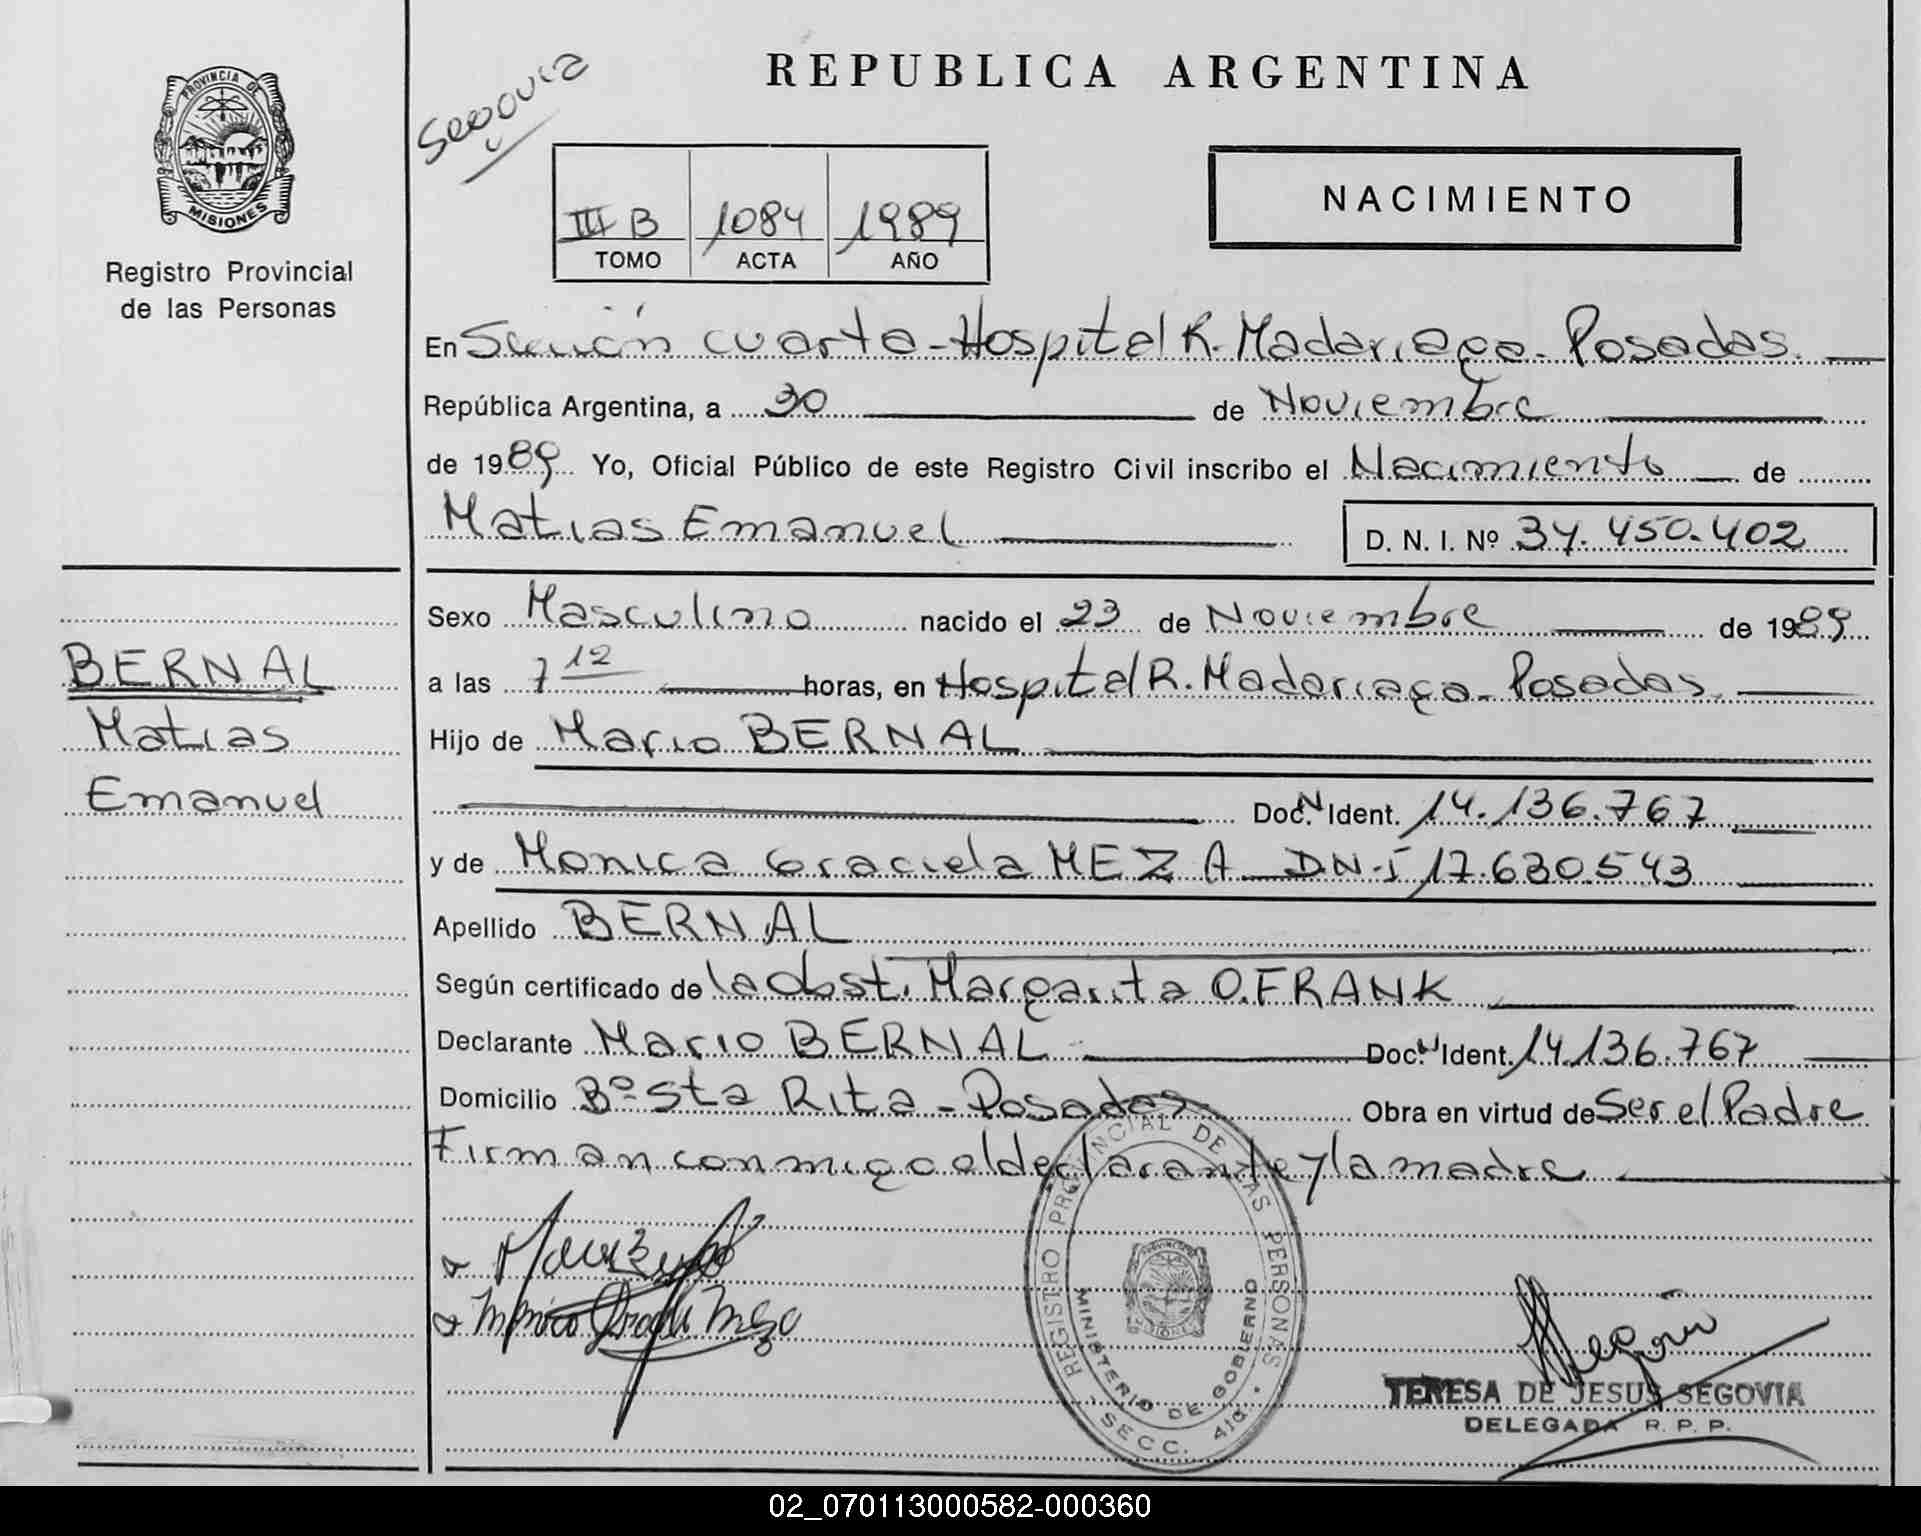 REPUBLICA ARGENTINA
Segovia
PROVINCIA DE
MISIONES
Registro Provincial
de las Personas
NACIMIENTO
III B 1084 1989
TOMO ACTA AÑO
En Sección cuarta - Hospital R. Madariaga - Posadas.
República Argentina, a 30 de Noviembre
de 1989. Yo, Oficial Público de este Registro Civil inscribo el Nacimiento de
Matias Emanuel D. N. I. Nº 34.450.402
Sexo Masculino nacido el 23 de Noviembre de 1989
a las 7 12 horas, en Hospital R. Madariaga - Posadas.
Hijo de Mario BERNAL
Doc. N Ident. 14.136.767
y de Monica Graciela MEZA D.N.I 17.630.543
Apellido BERNAL
Según certificado de la Obst. Margarita O. FRANK
Declarante Mario BERNAL Doc. N Ident. 14.136.767
Domicilio Bº Sta Rita - Posadas Obra en virtud de Ser el Padre
Firman conmigo el declarante y la madre
BERNAL
Matias
Emanuel
Monica Graciela Meza
REGISTRO PROVINCIAL DE LAS PERSONAS
MINISTERIO DE GOBIERNO
SECC. 4ta.
MISIONES
Segovia
TERESA DE JESUS SEGOVIA
DELEGADA R. P. P.
02_070113000582-000360